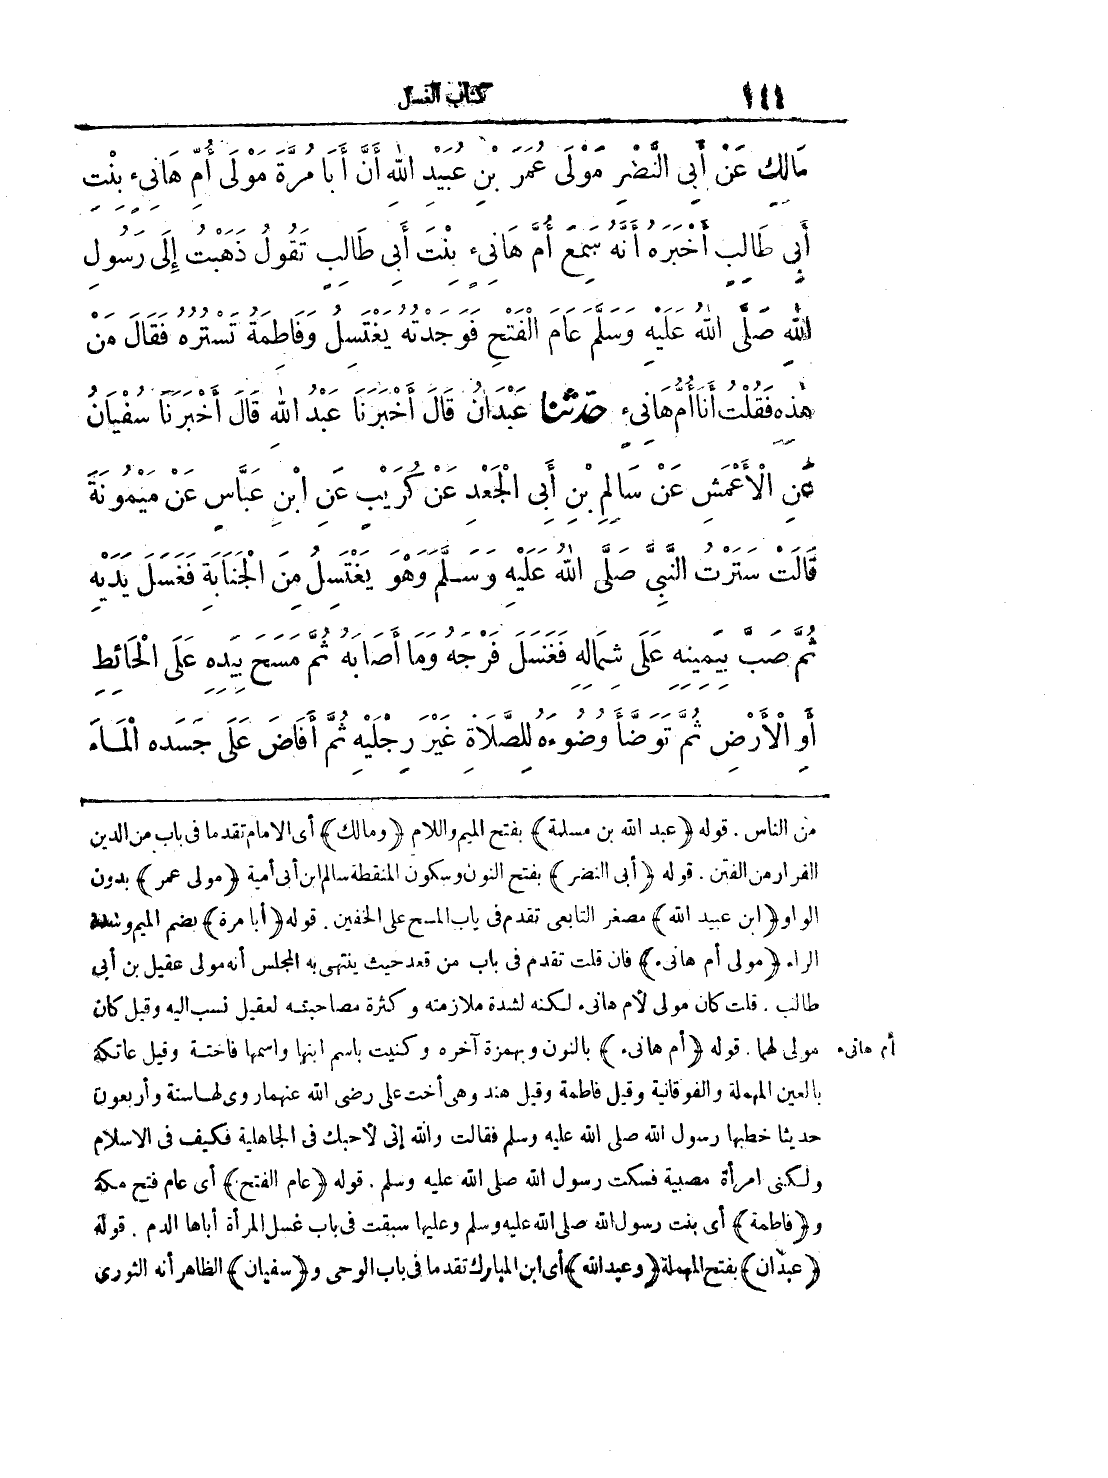 ١٤٤ كتاب الغسل
مَالِكٍ عَنْ أَبِى النَّضْرِ مَوْلَى عُمَرَ بْنِ عُبَيْدِ اللهِ أَنَّ أَبَا مُرَّةَ مَوْلَى أُمِّ هَانِىءٍ بِنْتِ
أَبِى طَالِبٍ أَخْبَرَهُ أَنَّهُ سَمِعَ أُمَّ هَانِىءٍ بِنْتَ أَبِى طَالِبٍ تَقُولُ ذَهَبْتُ إِلَى رَسُولِ
اللهِ صَلَّى اللهُ عَلَيْهِ وَسَلَّمَ عَامَ الْفَتْحِ فَوَجَدْتُهُ يَغْتَسِلُ وَفَاطِمَةُ تَسْتُرُهُ فَقَالَ مَنْ
هٰذِهِ فَقُلْتُ أَنَا أُمُّ هَانِىءٍ حَدَّثَنَا عَبْدَانُ قَالَ أَخْبَرَنَا عَبْدُ اللهِ قَالَ أَخْبَرَنَا سُفْيَانُ
عَنِ الْأَعْمَشِ عَنْ سَالِمِ بْنِ أَبِى الْجَعْدِ عَنْ كُرَيْبٍ عَنِ ابْنِ عَبَّاسٍ عَنْ مَيْمُونَةَ
قَالَتْ سَتَرْتُ النَّبِىَّ صَلَّى اللهُ عَلَيْهِ وَسَلَّمَ وَهْوَ يَغْتَسِلُ مِنَ الْجَنَابَةِ فَغَسَلَ يَدَيْهِ
ثُمَّ صَبَّ بِيَمِينِهِ عَلَى شِمَالِهِ فَغَسَلَ فَرْجَهُ وَمَا أَصَابَهُ ثُمَّ مَسَحَ بِيَدِهِ عَلَى الْحَائِطِ
أَوِ الْأَرْضِ ثُمَّ تَوَضَّأَ وُضُوءَهُ لِلصَّلَاةِ غَيْرَ رِجْلَيْهِ ثُمَّ أَفَاضَ عَلَى جَسَدِهِ الْمَاءَ
من الناس . قوله ﴿عبد الله بن مسلمة﴾ بفتح الميم واللام ﴿ومالك﴾ أى الامام تقدما فى باب من الدين
الفرار من الفتن . قوله ﴿أبى النضر﴾ بفتح النون وسكون المنقطة سالم ابن أبى أمية ﴿مولى عمر﴾ بدون
الواو ﴿ابن عبيد الله﴾ مصغر التابعى تقدم فى باب المسح على الخفين . قوله ﴿أبا مرة﴾ بضم الميم وشدة
الراء ﴿مولى أم هانىء﴾ فان قلت تقدم فى باب من قعد حيث ينتهى به المجلس أنه مولى عقيل بن أبى
طالب . قلت كان مولى لأم هانىء لكنه لشدة ملازمته وكثرة مصاحبته لعقيل نسب اليه وقيل كان
مولى لهما . قوله ﴿أم هانىء﴾ بالنون وبهمزة آخره وكنيت باسم ابنها واسمها فاختة وقيل عاتكة
أم هانىء
بالعين المهملة والفوقانية وقيل فاطمة وقيل هند وهى أخت على رضى الله عنهما روى لها ستة وأربعون
حديثا خطبها رسول الله صلى الله عليه وسلم فقالت والله إنى لأحبك فى الجاهلية فكيف فى الاسلام
ولكنى امرأة مصبية فسكت رسول الله صلى الله عليه وسلم . قوله ﴿عام الفتح﴾ أى عام فتح مكة
و﴿فاطمة﴾ أى بنت رسول الله صلى الله عليه وسلم وعليها سبقت فى باب غسل المرأة أباها الدم . قوله
﴿عبدان﴾ بفتح المهملة ﴿وعبد الله﴾ أى ابن المبارك تقدما فى باب الوحى و﴿سفيان﴾ الظاهر أنه الثورى